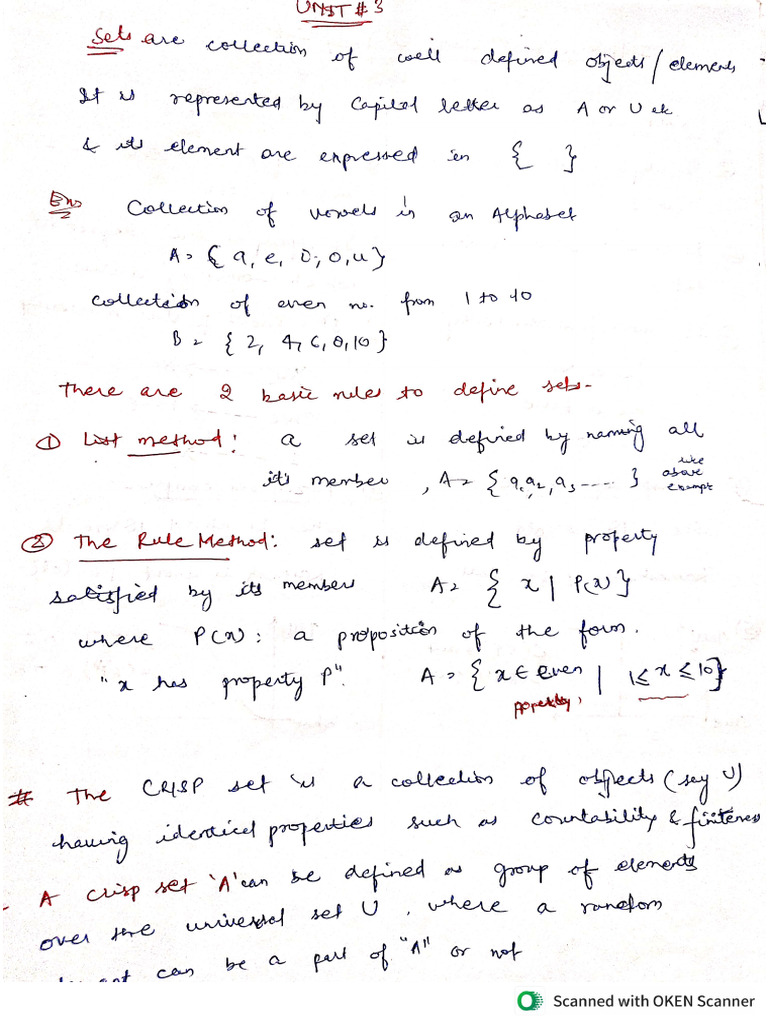 UNIT # 3
Sets are collection of well defined objects / elements
It is represented by Capital letter as A or U etc
& its element are expressed in { }
Ex Collection of vowels in an Alphabet
A = { a, e, i, o, u }
collection of even no. from 1 to 10
B = { 2, 4, 6, 8, 10 }
There are 2 basic rules to define sets -
① List method : a set is defined by naming all
its member , A = { a1, a2, a3, .... } like above exampt
② The Rule Method : set is defined by property
satisfied by its member A = { x | P(x) }
where P(x) : a proposition of the form.
"x has property P". A = { x ∈ even | 1 ≤ x ≤ 10 }
# The CRISP set is a collection of objects (say U)
having identical properties such as countability & finiteness
- A crisp set 'A' can be defined as group of elements
over the universal set U , where a random
can be a part of "A" or not
Scanned with OKEN Scanner